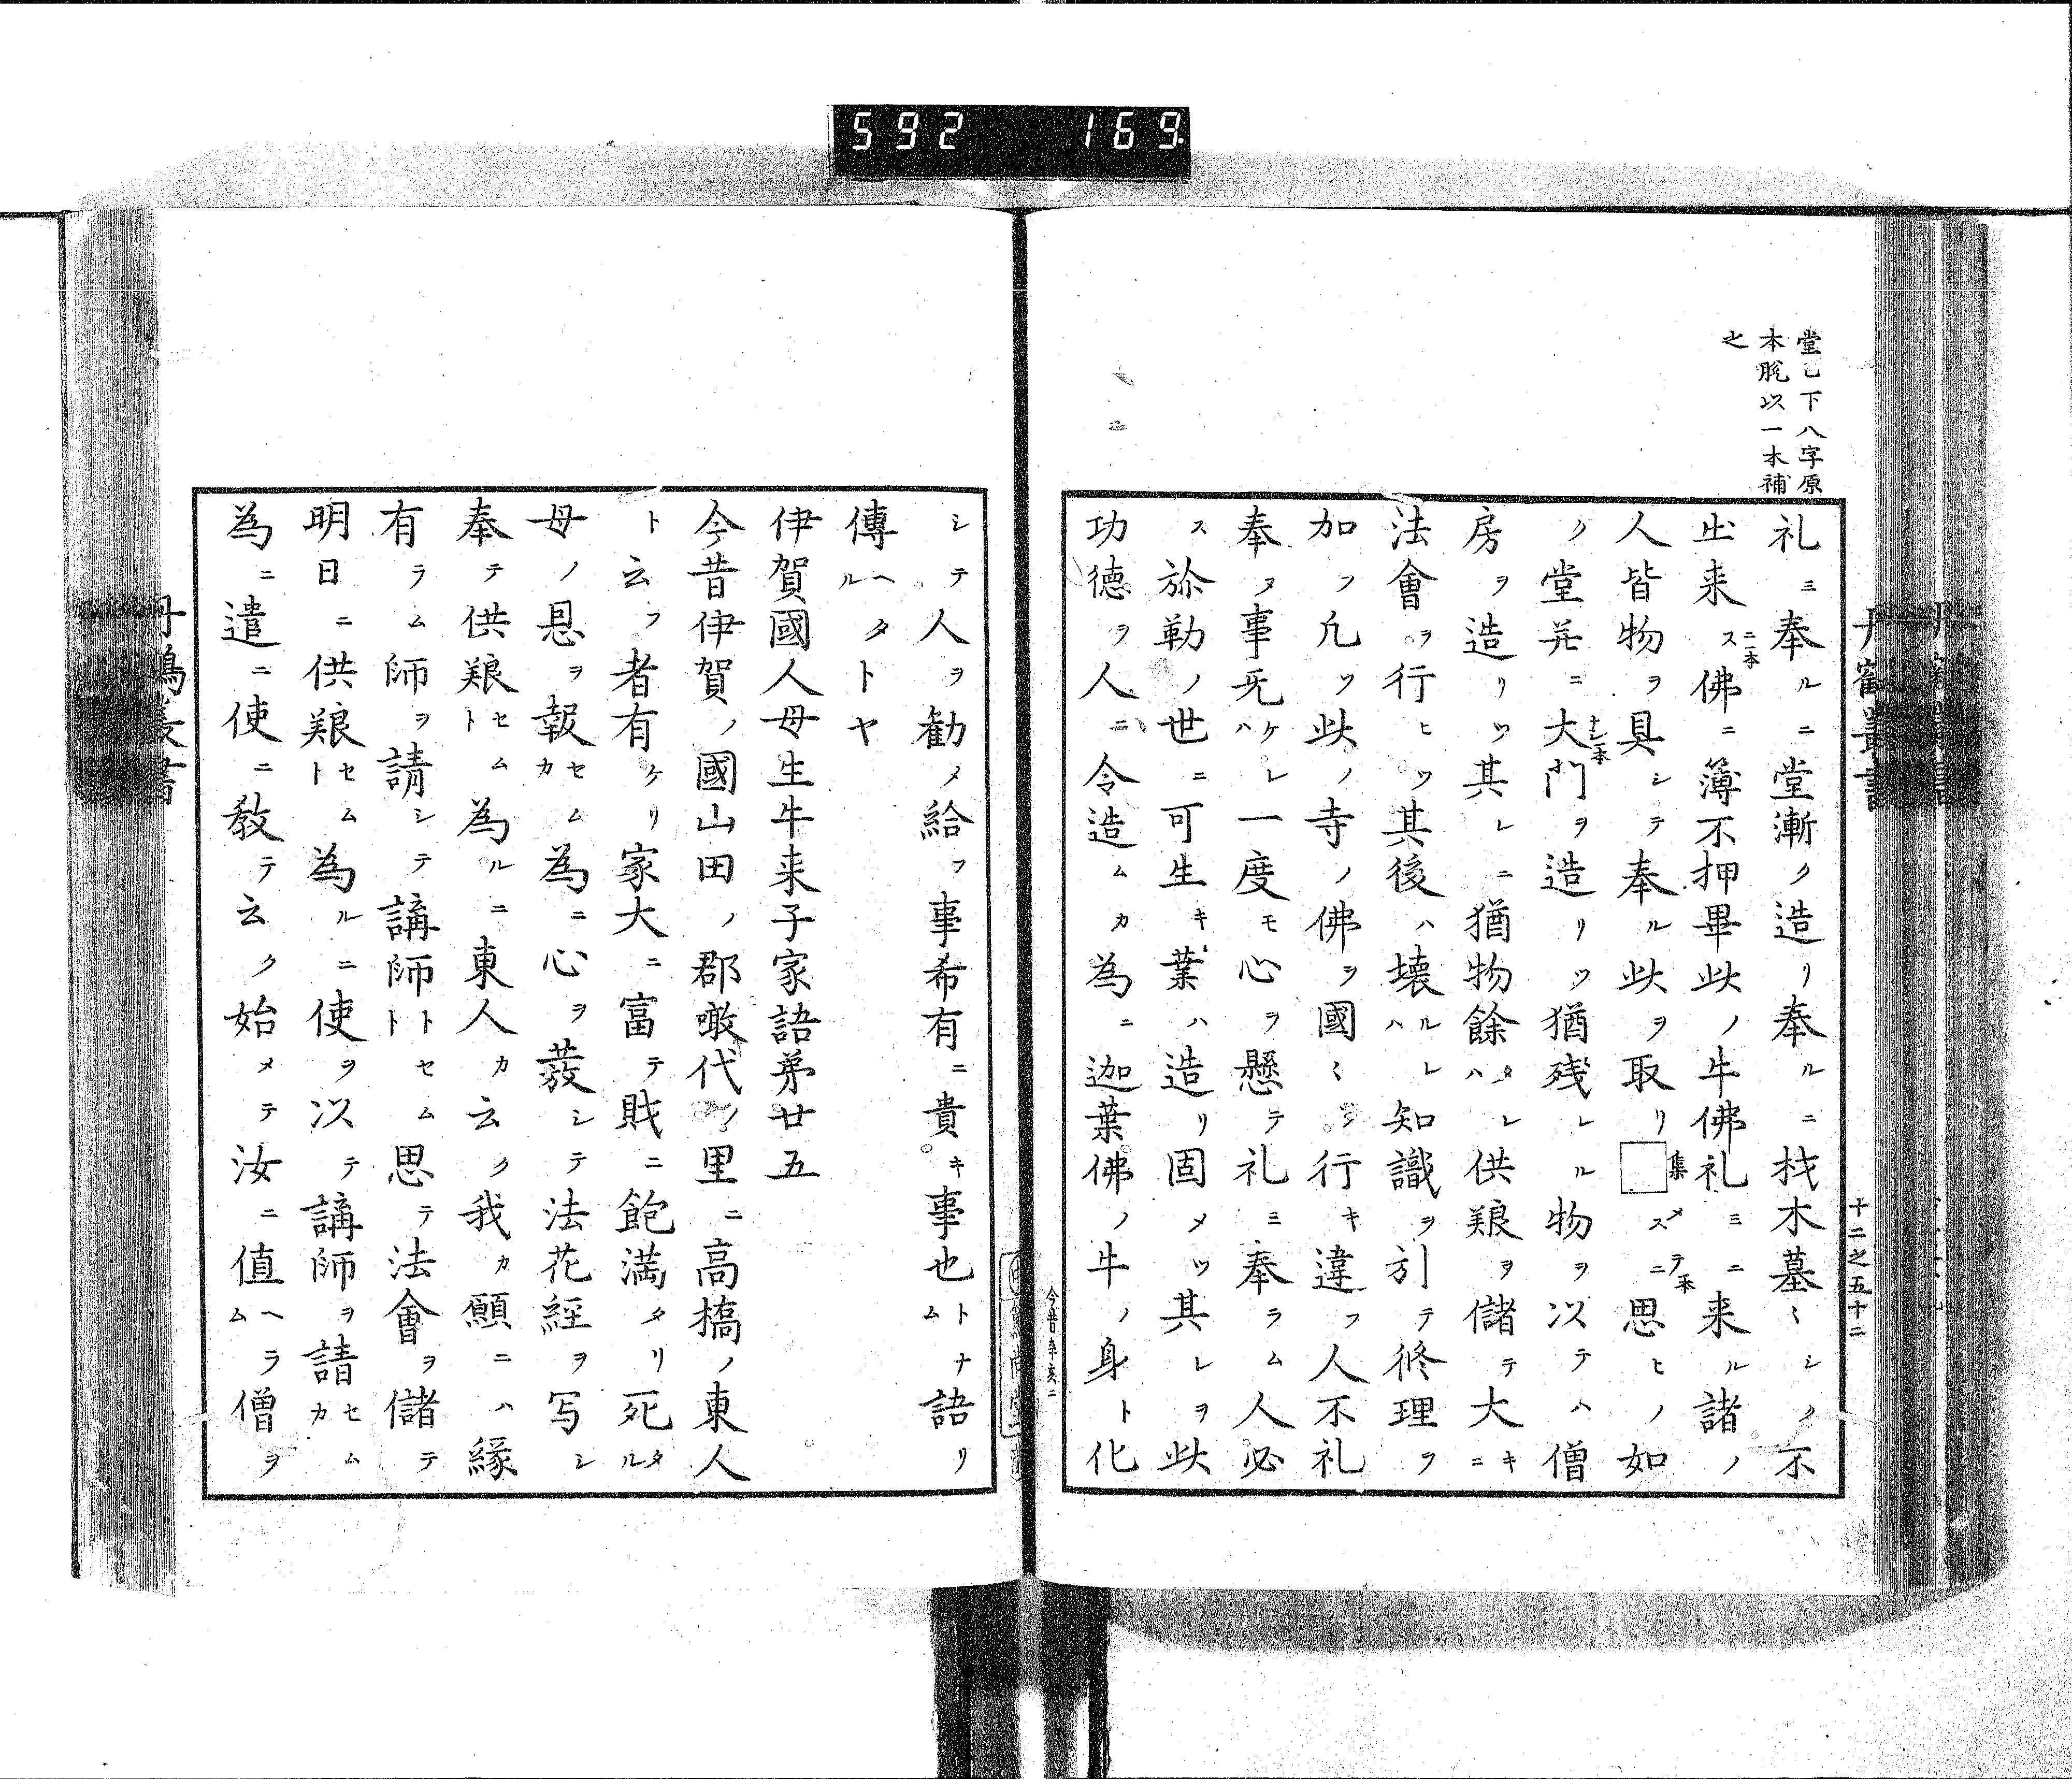 592 169
堂已下八字原
本脱以一本補
之
丹鶴叢書
十二之五十二
礼ミ奉ルニ堂漸ク造リ奉ルニ材木墓〻シク不
出来ス佛ニ簿不押畢此ノ牛佛礼ミニ来ル諸ノ
ニ一本
人皆物ヲ具シテ奉ル此ヲ取リ□スニ思ヒノ如
集メ テ一本
ク堂并ニ大門ヲ造リツ猶残レル物ヲ以テハ僧
ナシ一本
房ヲ造リツ其レニ猶物餘タレハ供粮ヲ儲テ大キニ
法會ヲ行ヒツ其後ハ壊ルレハ知識ヲ引テ修理ヲ
加フ凡ソ此ノ寺ノ佛ヲ國〻ニ行キ違フ人不礼
奉ヌ事旡ケレハ一度モ心ヲ懸テ礼ミ奉ラム人必
ス弥勒ノ世ニ可生キ葉ハ造リ固メツ其レヲ此
功徳ヲ人ニ令造ムカ為ニ迦葉佛ノ牛ノ身ト化
今昔本文二
シテ人ヲ勧メ給フ事希有ニ貴キ事也トナム語リ
傳ヘタルトヤ
伊賀國人母生牛来子家語第廿五
今昔伊賀ノ國山田ノ郡噉代ノ里ニ高橋ノ東人
ト云フ者有ケリ家大ニ富テ財ニ飽満タリ死タル
母ノ恩ヲ報セムカ為ニ心ヲ發シテ法花經ヲ写シ
奉テ供粮セムト為ルニ東人カ云ク我カ願ニハ縁
有ラム師ヲ請シテ講師トセムト思テ法會ヲ儲テ
明日ニ供粮セムト為ルニ使ヲ以テ講師ヲ請セムカ
為ニ遣ニ使ニ教テ云ク始メテ汝ニ値ヘラム僧ヲ
丹鶴叢書